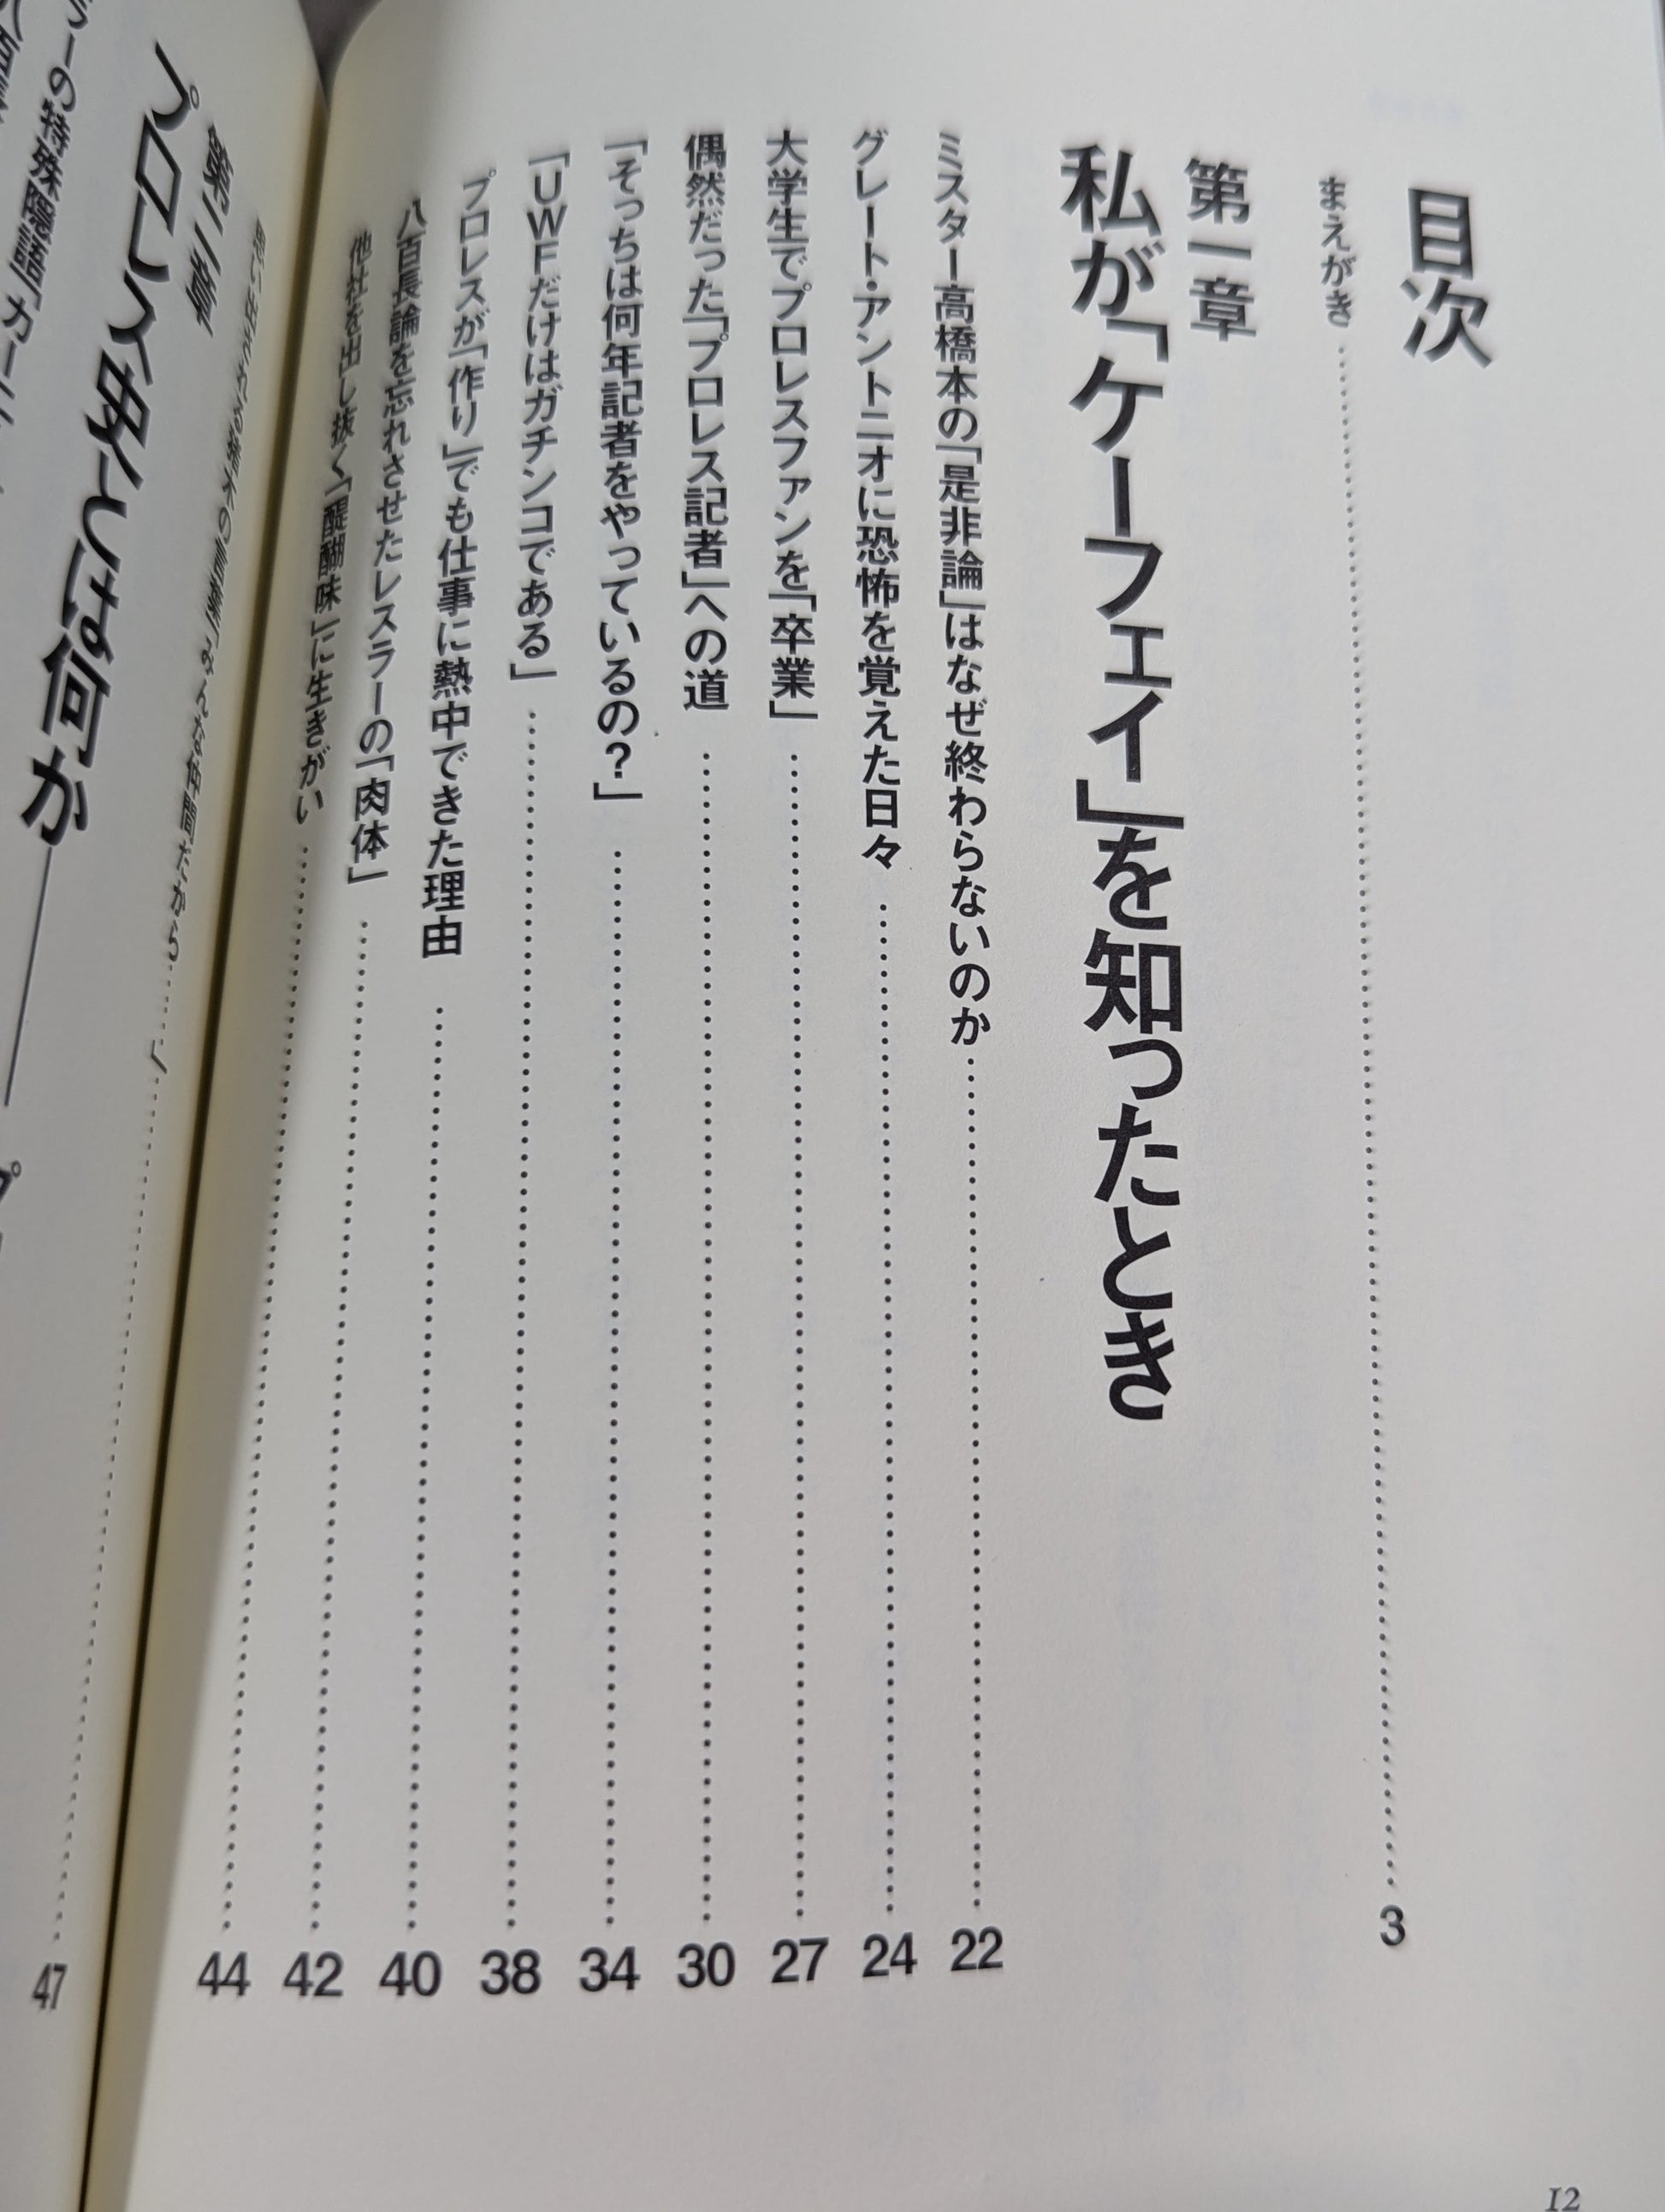 目次
まえがき……3
第一章
私が「ケーフェイ」を知ったとき
ミスター高橋本の「是非論」はなぜ終わらないのか……22
グレート・アントニオに恐怖を覚えた日々……24
大学生でプロレスファンを「卒業」……27
偶然だった「プロレス記者」への道……30
「そっちは何年記者をやっているの？」……34
「ＵＷＦだけはガチンコである」……38
プロレスが「作り」でも仕事に熱中できた理由……40
八百長論を忘れさせたレスラーの「肉体」……42
他社を出し抜く「醍醐味」に生きがい……44
の言葉「みんな仲間だから」……47
第二章
プロレス史とは何か
ラーの特殊隠語「カー
12